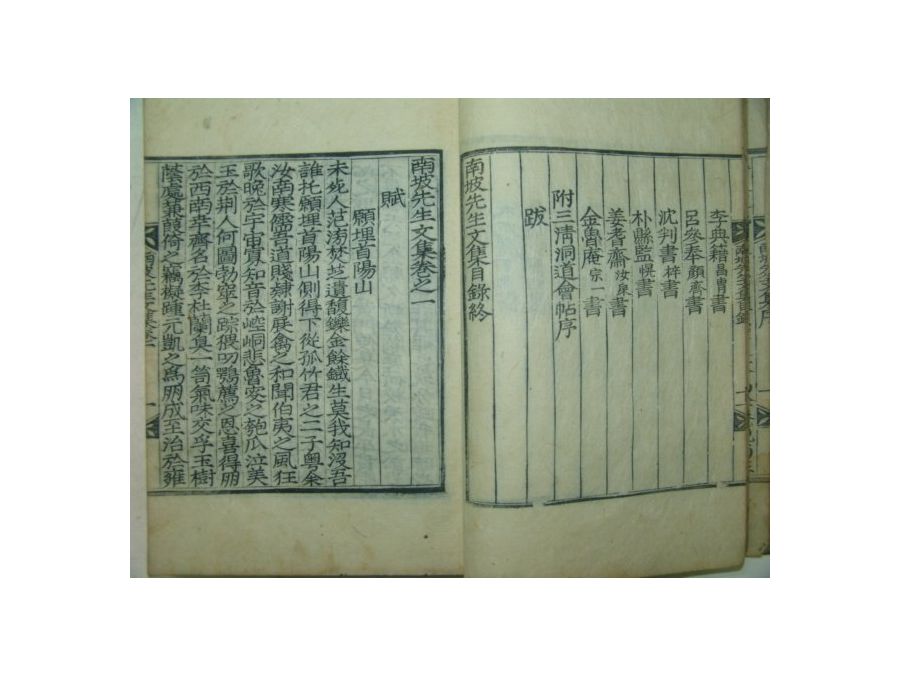 李典籍昌胄書
呂參奉顧齋書
沈判書梓書
朴縣監愰書
姜耆齋汝㦿書
金魯庵宗一書
附三淸洞道會帖序
跋
南坡先生文集目錄終
南坡先生文集卷之一
賦
願埋首陽山
未死人范滂焚芝遺馥鑠金餘鐵生莫我知沒吾
誰托願埋首陽山側得下從孤竹君之二子粤余
汝南寒儒吾道賤隸謝展禽之和聞伯夷之風狂
歌晩於宇宙寘知音於崆峒悲魯叟之匏瓜泣美
玉於荊人何圖勃窣之踪猥叨鶚薦之恩喜得朋
於西南幸齊名於李杜蘭臭一笥氣味交孚玉樹
蔭處蒹葭倚之竊擬踵元凱之爲朋成至治於雍